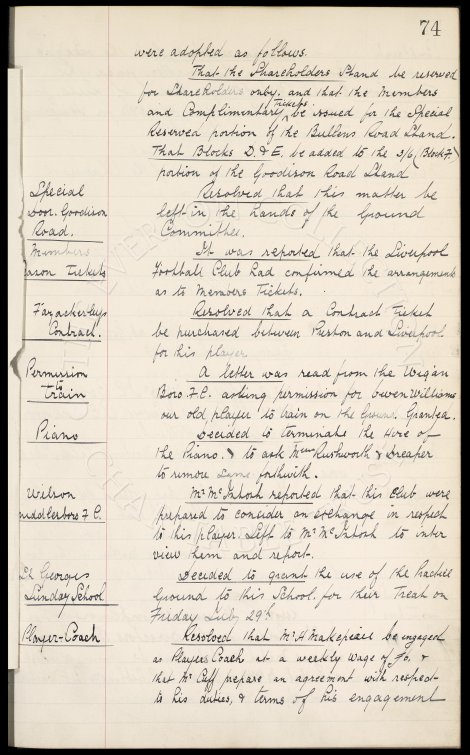 74
were adopted as follows.
That the Shareholders Stand be reserved
for Shareholders only, and that the Members
and Complimentary Tickets be issued for the Special
Reserved portion of the Bullens Road Stand.
That Blocks D. & E. be added to the 3/6 (Block F.)
portion of the Goodison Road Stand
Special
Door. Goodison
Road.
Resolved that this matter be
left in the hands of the Ground
Committee.
Members
Season Tickets
It was reported that the Liverpool
Football Club had confirmed the arrangements
as to Members Tickets.
Fazackerleys
Contract.
Resolved that a Contract Ticket
be purchased between Preston and Liverpool
for this player
Permission
to
train
A letter was read from the Wigan
Boro F.C. asking permission for Owen Williams
our old player to train on the Ground. Granted.
Piano
Decided to terminate the Hire of
the Piano. & to ask Messrs Rushworth & Dreaper
to remove same forthwith.
Wilson
Middlesboro F.C.
Mr McIntosh reported that this Club were
prepared to consider an exchange in respect
to this player. Left to Mr McIntosh to inter
view them and report.
St Georges
Sunday School
Decided to grant the use of the Practice
Ground to this School for their Treat on
Friday July 29th
Player-Coach
Resolved that Mr H Makepeace be engaged
as Players Coach at a weekly wage of &
that Mr Cuff prepare an agreement with respect
to his duties, & terms of his engagement